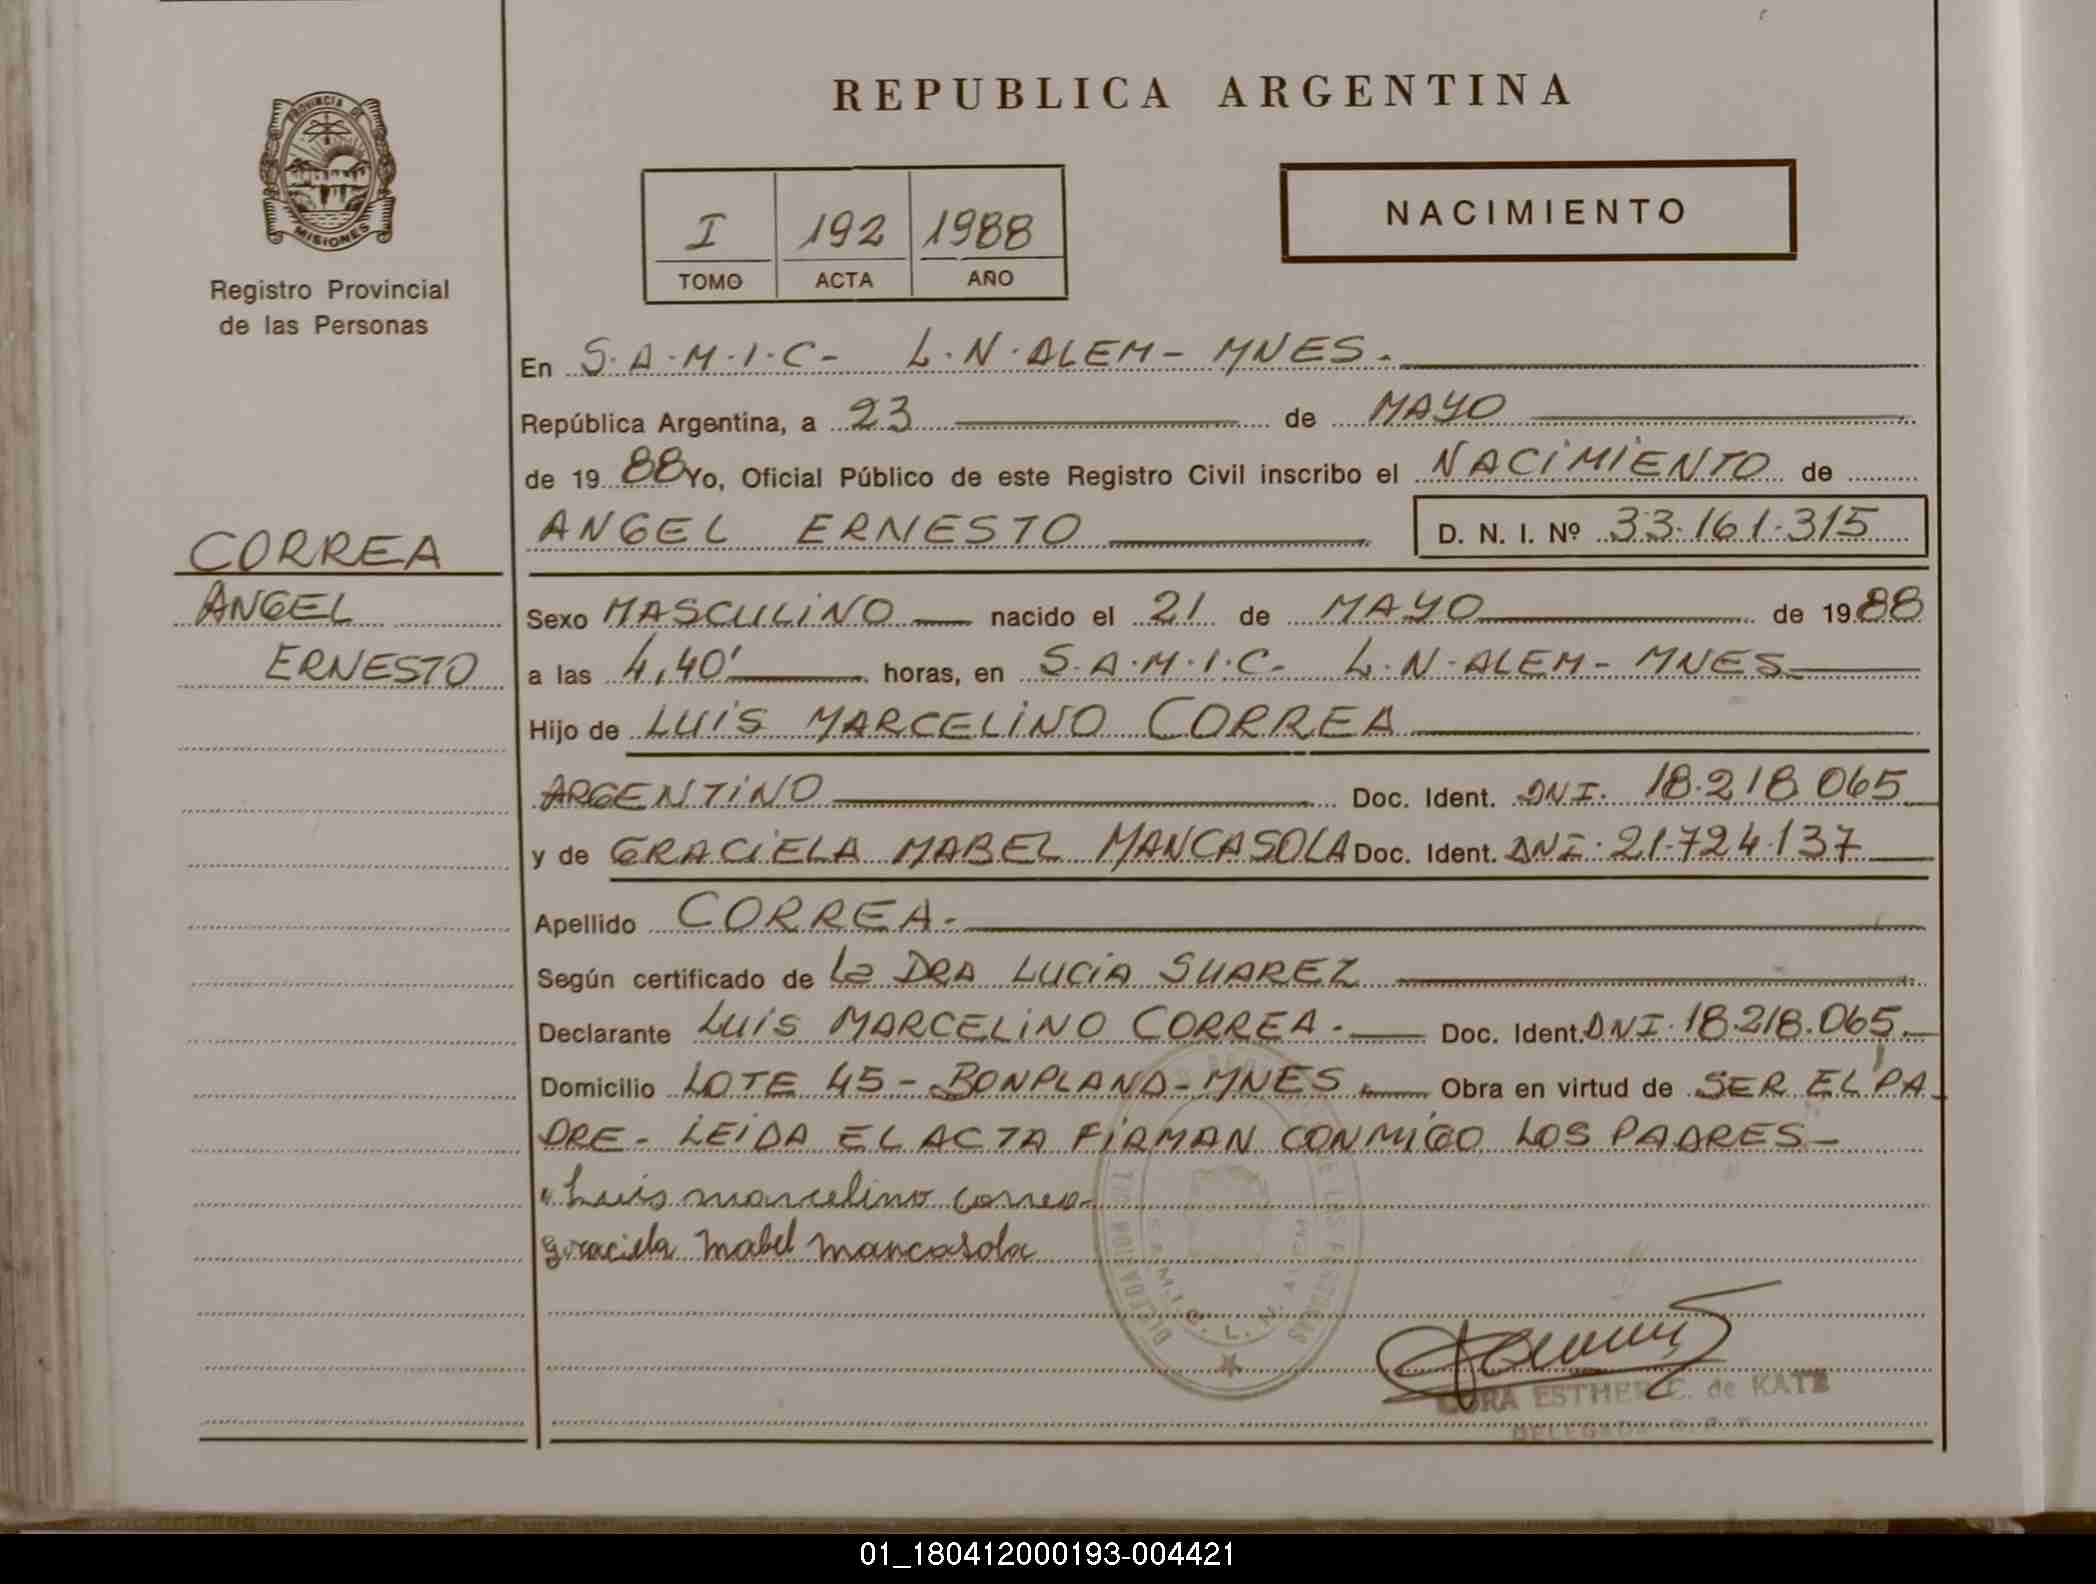 REPUBLICA ARGENTINA
PROVINCIA DE
MISIONES
Registro Provincial
de las Personas
I 192 1988
TOMO ACTA AÑO
NACIMIENTO
En S.A.M.I.C- L.N.ALEM- MNES.
República Argentina, a 23 de MAYO
de 19 88 Yo, Oficial Público de este Registro Civil inscribo el NACIMIENTO de
ANGEL ERNESTO D. N. I. Nº 33.161.315
CORREA
ANGEL
ERNESTO
Sexo MASCULINO nacido el 21 de MAYO de 19 88
a las 4,40' horas, en S.A.M.I.C- L.N.ALEM- MNES
Hijo de LUIS MARCELINO CORREA
ARGENTINO Doc. Ident. DNI. 18.218.065
y de GRACIELA MABEL MANCASOLA Doc. Ident. DNI. 21.724.137
Apellido CORREA.
Según certificado de la DRA LUCIA SUAREZ
Declarante LUIS MARCELINO CORREA. Doc. Ident. DNI. 18.218.065.
Domicilio LOTE 45 - BONPLAND - MNES Obra en virtud de SER EL PA
DRE- LEIDA EL ACTA FIRMAN CONMIGO LOS PADRES-
Luis marcelino correa
Graciela Mabel Mancasola
S.A.M.I.C. L.N. ALEM
ESTHER C. de KATZ
DELEGADA
01_180412000193-004421